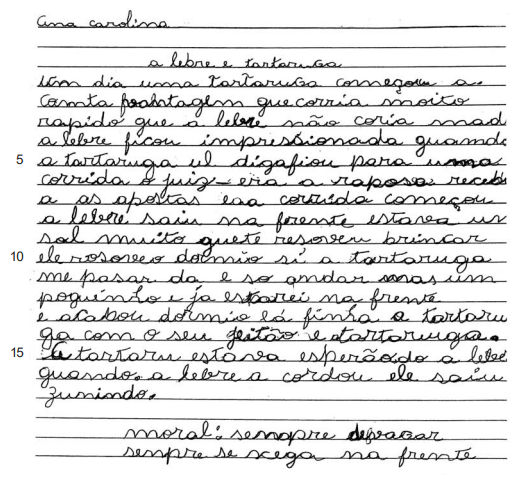 Ana carolina
a lebre e tartaruga
Um dia uma Tartaruga começou a.
Camta que corria moito
rapido que a lebre não coria mad
a lebre ficou impressionada quamdo
5 a tartaruga ul digafiou para uma
corrida o juiz-era a raposa receb
a as apostas eaa corrida começou
a lebre saiu na frente estava um
sol muito quete resoveu brincar
10 ele rosoveo dormio si a tartaruga
me pasar da e so andar mas um
poquinho e ja estarei na frente
e acabou dormio lá finha a tartaru
ga com o seu jeitão e dartaruuga.
15 A tartaru estava esperãodo a lebre
guando. a lebre a cordou ele saiu
zunindo.
moral: sempre devacar
sempre se xega na frente